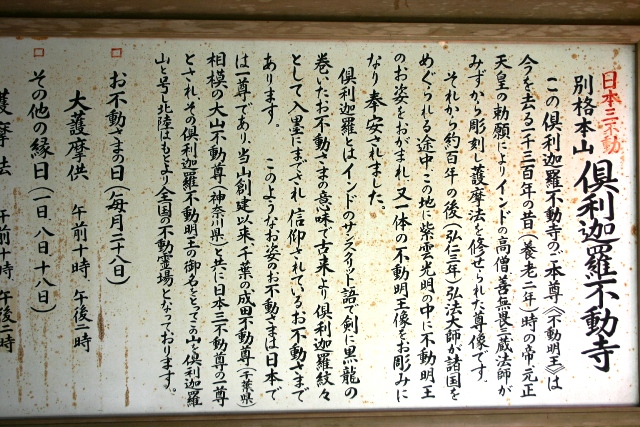 日本三不動
別格本山 倶利迦羅不動寺
この倶利迦羅不動寺のご本尊《不動明王》は
今を去る一千三百年の昔(養老二年)時の帝元正
天皇の勅願によりインドの高僧・善無畏三蔵法師が
みずから彫刻し護摩法を修せられた尊像です。
それから約百年の後(弘仁三年)弘法大師が諸国を
めぐられる途中、この地に紫雲光明の中に不動明王
のお姿をおがまれ、又一体の不動明王像をお彫みに
なり奉安されました。
倶利迦羅とはインドのサンスクリット語で剣に黒龍の
巻いたお不動さまの意味で古来より倶利迦羅紋々
として入墨にまでされ、信仰されているお不動さまで
あります。 このようなお姿のお不動さまは日本で
は一尊であり、当山創建以来、千葉の成田不動尊(千葉県)
相模の大山不動尊(神奈川県)と共に日本三不動尊の一尊
とされ、その倶利迦羅不動明王の御名をとってこの山を倶利迦羅
山と号し北陸はもとより全国の不動霊場となっております。
□ お不動さまの日(毎月二十八日)
大護摩供 午前十時 午後二時
□ その他の縁日(一日、八日、十八日)
護摩法 午前十時 午後二時